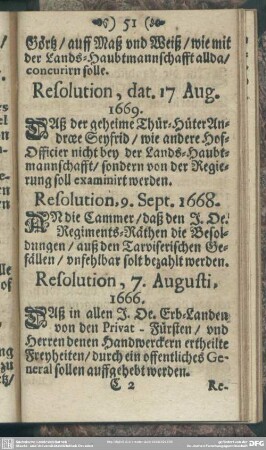 ) 51 (
Görtz / auff Maß vnd Weiß / wie mit
der Lands-Haubtmannschafft allda /
concurirn solle.
Resolution, dat. 17 Aug.
1669.
DAß der geheime Thür-Hüter An-
dreæ Seyfrid / wie andere Hof-
Officier nicht bey der Lands-Haubt-
mannschafft / sondern von der Regie-
rung soll examinirt werden.
Resolution, 9. Sept. 1668.
AN die Cammer / daß den J. Oe.
Regiments-Räthen die Besol-
dungen / auß den Tarviserischen Ge-
fällen / vnfehlbar solt bezahlt werden.
Resolution, 7. Augusti,
1666.
DAß in allen J. Oe. Erb-Landen
von den Privat-Fürsten / vnd
Herren denen Handwerckern ertheilte
Freyheiten / durch ein offentliches Ge-
neral sollen auffgehebt werden.
C 2 Re-